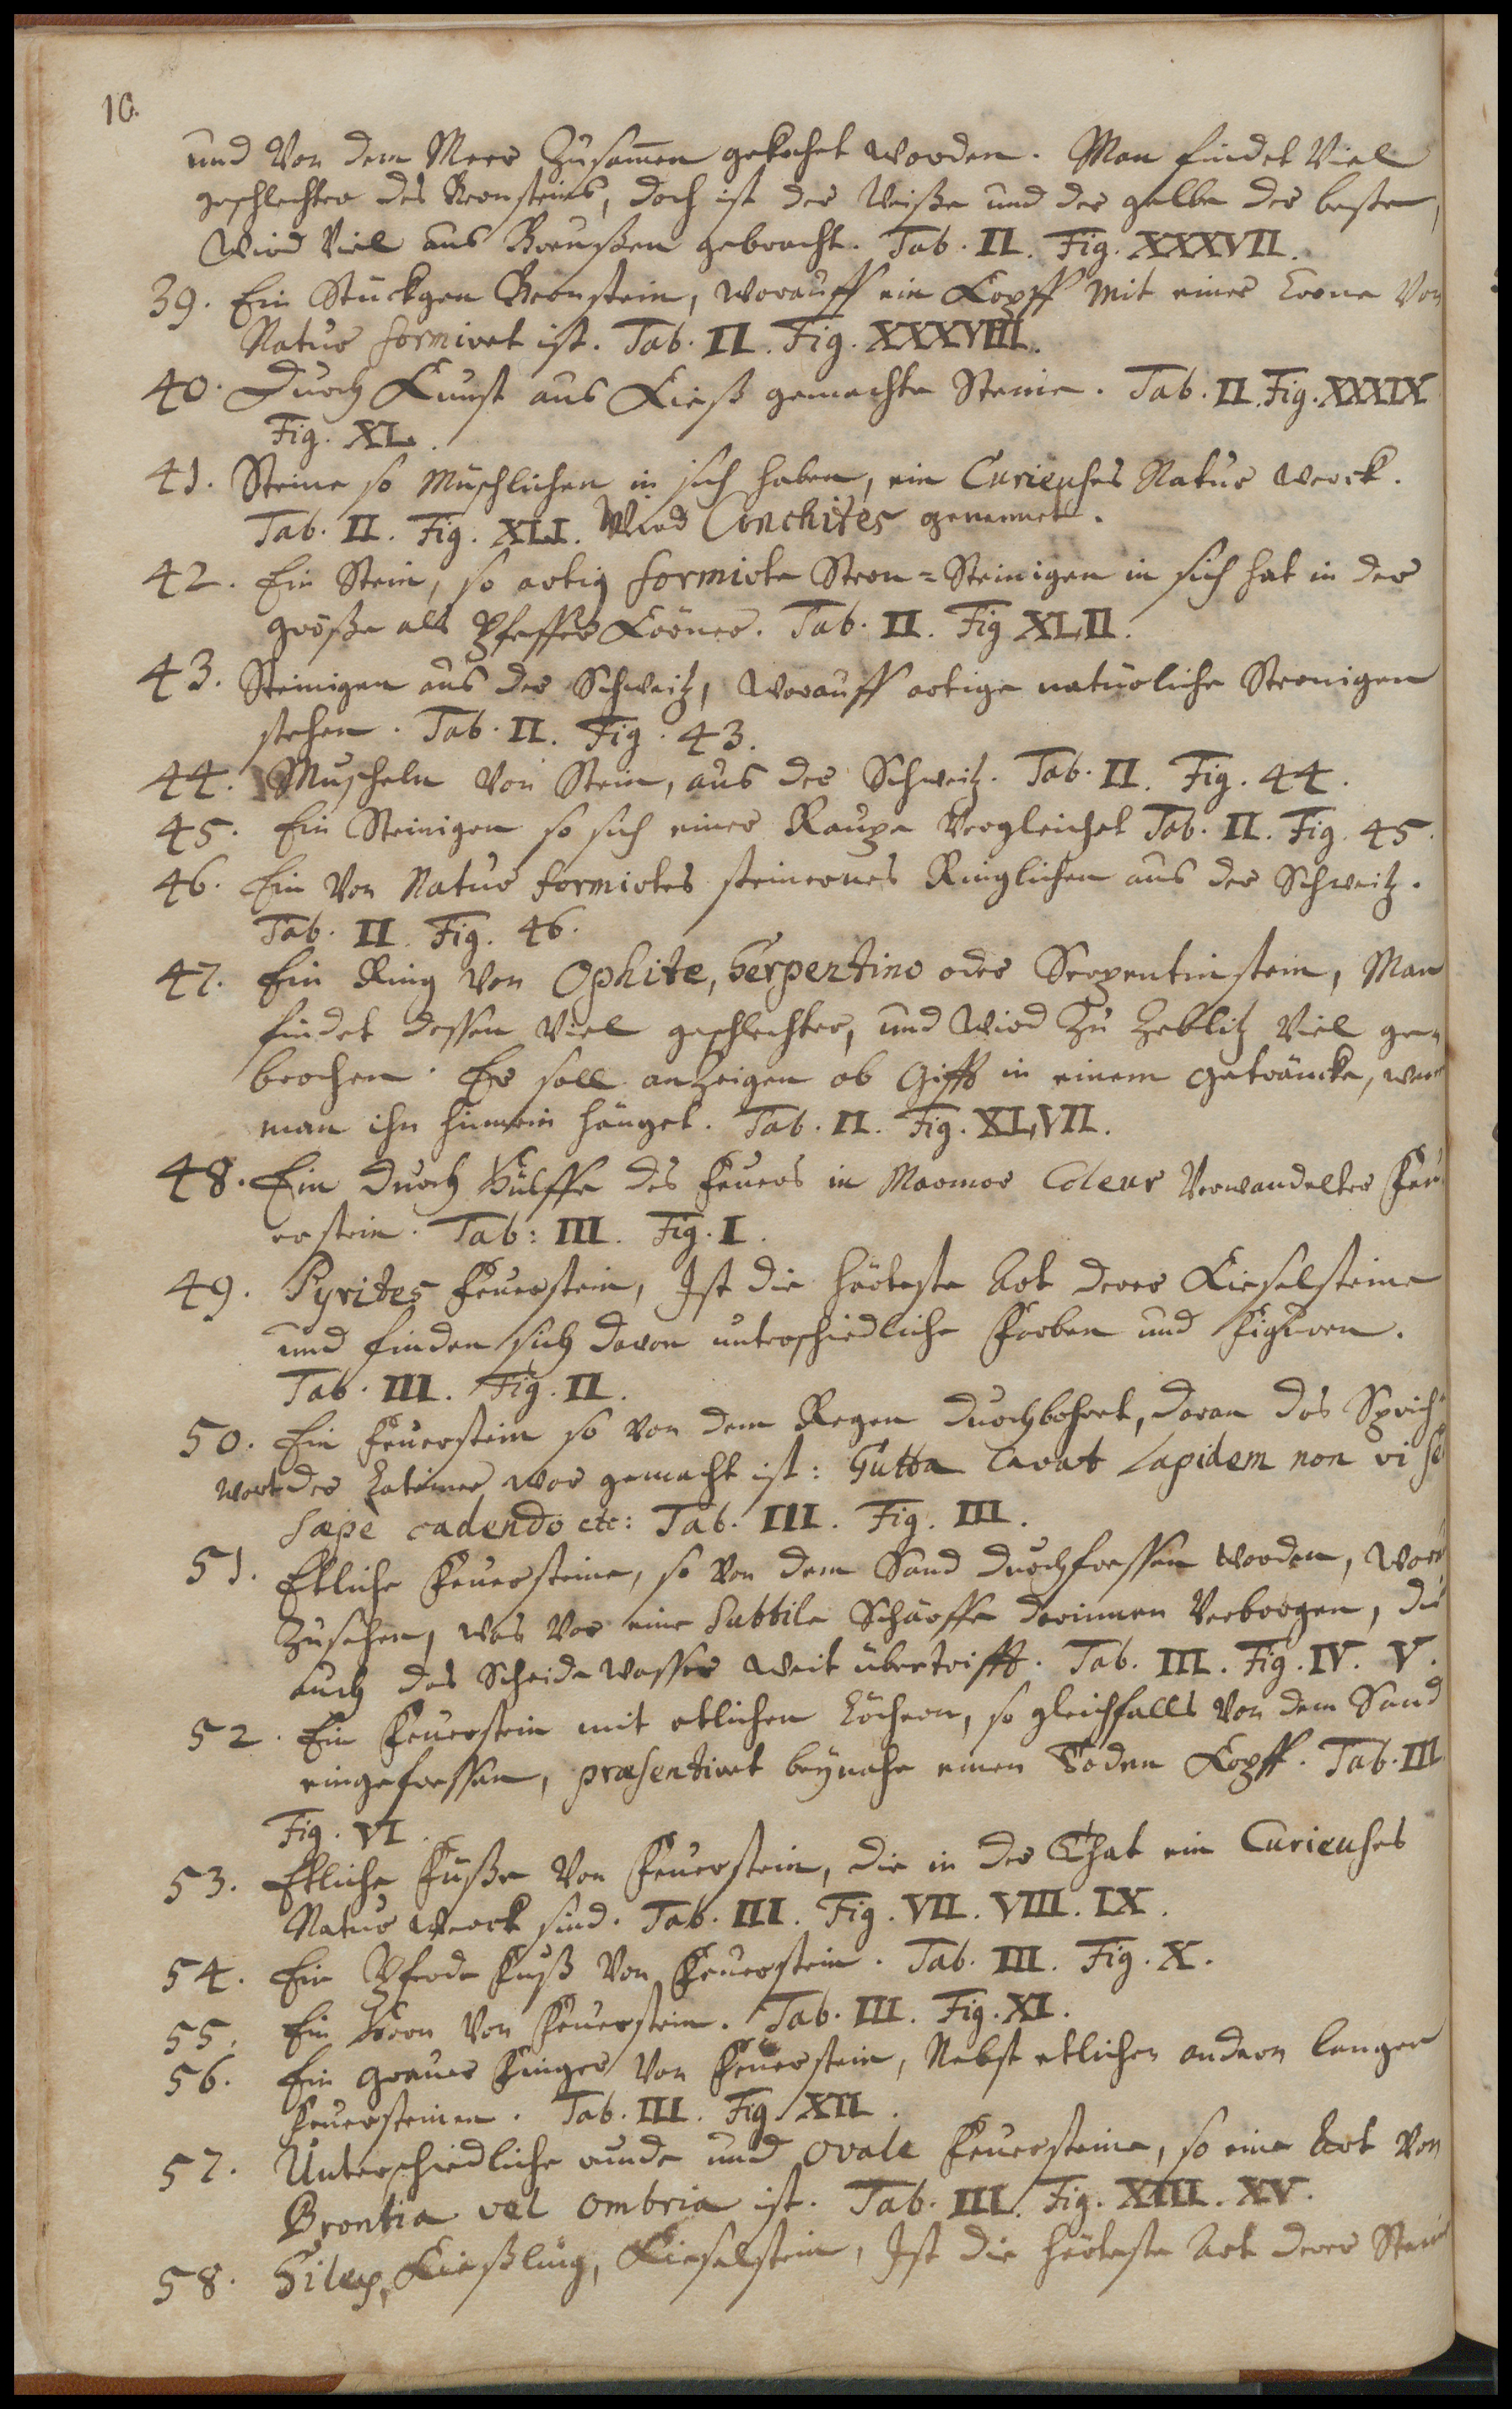 10.
und Von dem Meer Zusam̃en gekochet worden. Man findet Viel
geschlechter des Bernsteins, doch ist der Weiße und der gelbe der beste,
Wird Viel aus Breußen gebracht. Tab. II. Fig. XXXVII.
39. Ein Stückgen Bernstein, worauff ein Kopff mit einer Crone Von
Natur formiret ist. Tab. II. Fig. XXXVIII.
40. Durch Kunst aus Kieß gemachte Steine. Tab. II. Fig. XXXIX
Fig. XL.
41. Steine so Muschlichen in sich haben, ein Curieuses Natur werck.
Tab. II. Fig. XLI. Wird Conchites genennet.
42. Ein Stein, so artig formirte Stern=Steinigen in sich hat in der
größe als Pfeffer Körner. Tab. II. Fig XLII.
43. Steinigen aus der Schweitz, worauff artige natürliche Sternigen
stehen. Tab. II. Fig. 43.
44. Muscheln von Stein, aus der Schweitz. Tab. II. Fig. 44.
45. Ein Steinigen so sich einer Raupe Vergleichet Tab. II. Fig. 45.
46. Ein Von Natur formirtes steinernes Ringlichen aus der Schweitz.
Tab. II. Fig. 46.
47. Ein Ring Von Ophite, Serpentino oder Serpentinstein, Man
findet dessen Viel geschlechter, und Wird Zu Zeblitz Viel ge=
brochen. Er soll anzeigen ob Gifft in einem geträncke, wenn
man ihn hinnein hänget. Tab. II. Fig. XLVII.
48. Ein durch Hülffe des Feuers in Marmor Coleur Verwandelter Feu
erstein. Tab: III. Fig. I.
49. Pyrites Feuerstein, Ist die härteste Art derer Kieselsteine
und finden sich davon unterschiedliche Farben und Figuren.
Tab. III. Fig. II.
50. Ein Feuerstein so Von dem Regen durchbohret, daran das Sprich=
wort der Lateiner war gemacht ist: Gutta Cavat Lapidem non vi se
sæpè cadendo etc: Tab. III. Fig. III.
51. Etliche Feuersteine, so Von dem Sand durchfressen worden,
Zusehen, was Vor eine Subtile Schärffe darinnen Verborgen, die
auch das Scheide Wasser weit übertrifft. Tab. III. Fig. IV. V.
52. Ein Feuerstein mit etlichen Löchern, so gleichfalls Von dem Sand
eingefressen, præsentiret beynahe einen Toden Kopff. Tab. III
Fig. VI.
53. Etliche Füße Von Feuerstein, die in der That ein Curieuses
Natur Werck sind. Tab. III. Fig. VII. VIII. IX.
54. Ein Pferde Fuß Von Feuerstein. Tab. III. Fig. X.
55. Ein Horn Von Feuerstein. Tab. III. Fig. XI.
56. Ein grauer Finger Von Feuerstein, Nebst etlichen andern langen
Feuersteinen. Tab. III. Fig XII.
57. Unterschiedliche runde und ovale Feuersteine, so eine Art Von
Brontia vel ombria ist. Tab. III. Fig. XIII. XV.
58. Silex, Kießling, Kieselstein, Ist die härteste Art derer Stein